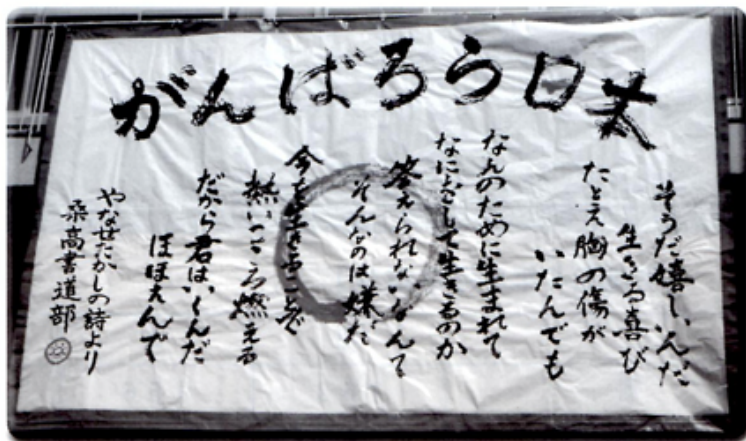 がんばろう日本
そうだ嬉しいんだ
生きる喜び
たとえ胸の傷が
いたんでも
なんのために生まれて
なにをして生きるのか
答えられないなんて
そんなのは嫌だ
今を生きることで
熱いこころ燃える
だから君はいくんだ
ほほえんで
やなせたかしの詩より
桑高書道部